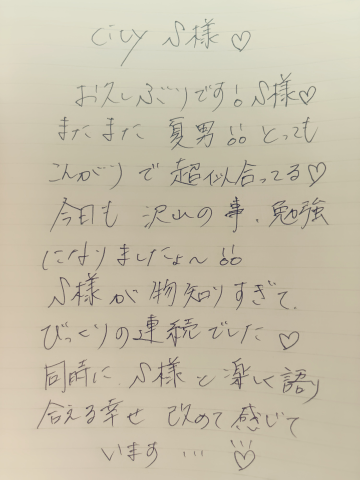 City S様♡
お久しぶりです! S様♡
まだまだ 夏男!! とっても
こんがりで 超似合ってる♡
今日も 沢山の事、勉強
になりましたょ〜!!
S様が物知りすぎて、
びっくりの連続でした♡
同時に S様と楽しく語り
合える幸せ 改めて感じて
います…♡